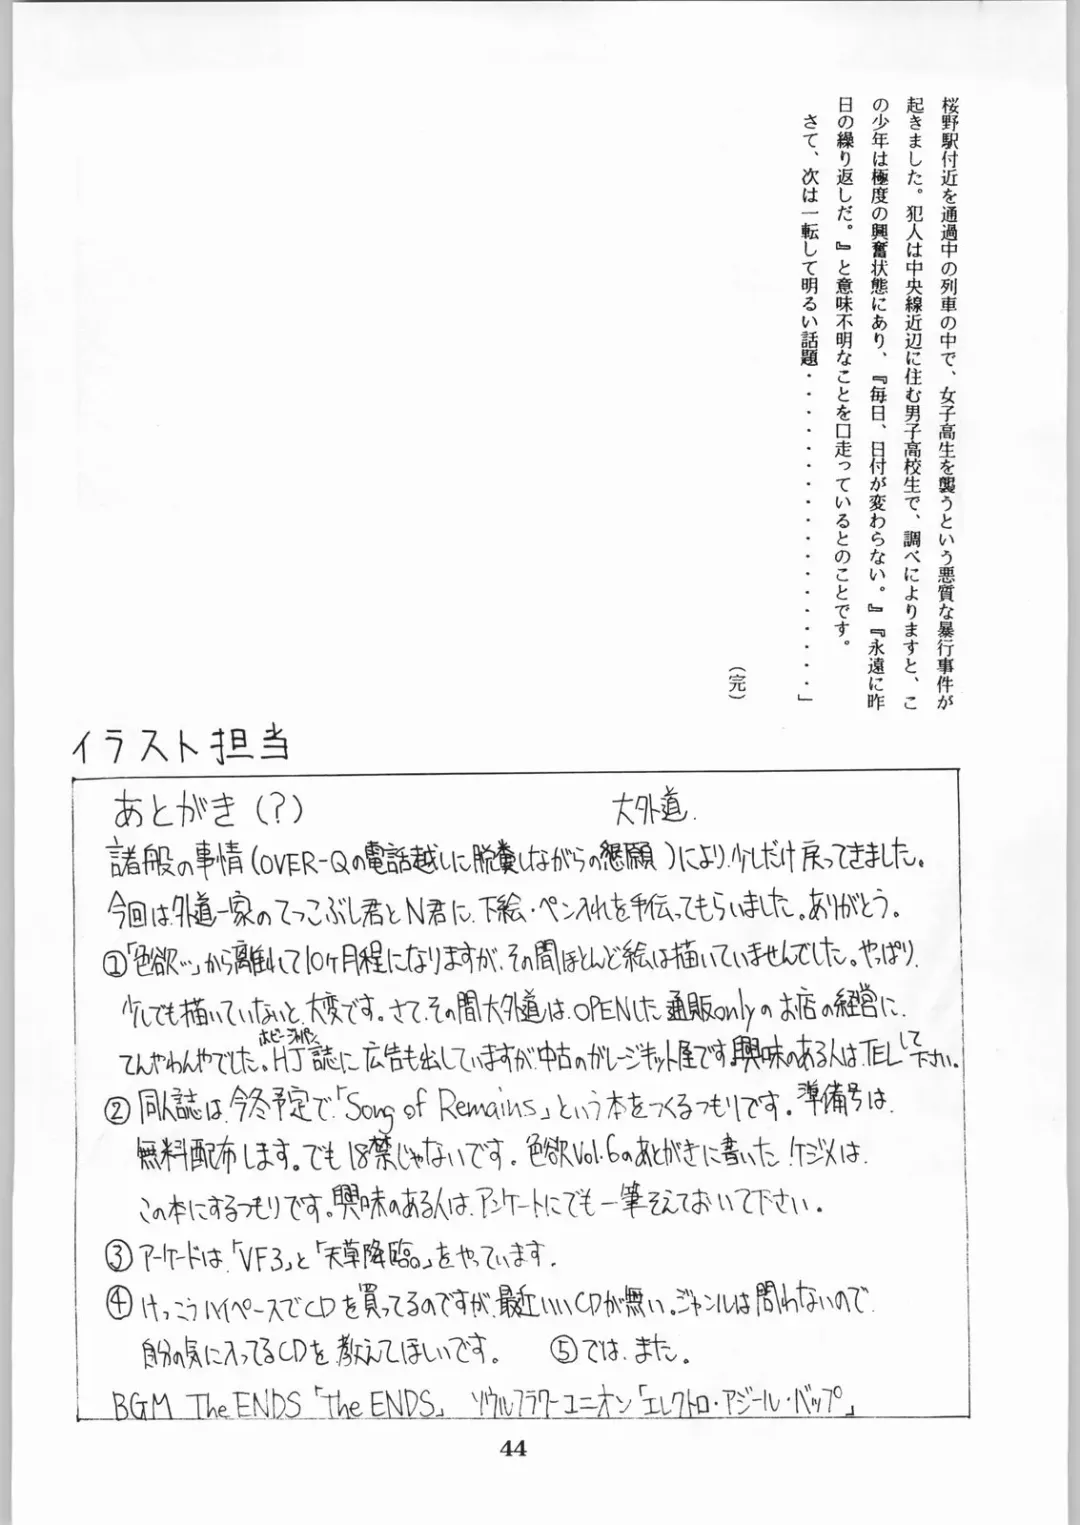 桜野駅付近を通過中の列車の中で、女子高生を襲うという悪質な暴行事件が
起きました。犯人は中央線近辺に住む男子高校生で、調べによりますと、こ
の少年は極度の興奮状態にあり、『毎日、日付が変わらない。』『永遠に昨
日の繰り返しだ。』と意味不明なことを口走っているとのことです。
さて、次は一転して明るい話題・・・・・・・・・・・・・・・・・・」
（完）
イラスト担当
あとがき(?)
大外道.
諸般の事情(OVER-Qの電話越しに脱糞しながらの懇願)により、少しだけ戻ってきました。
今回は、外道一家のてっこぶし君とN君に、下絵・ペン入れを手伝ってもらいました。ありがとう。
①「色欲…」から離れて10ヶ月程になりますが、その間ほとんど絵は描いていませんでした。やっぱり、
少しでも描いていないと、大変です。さて、その間大外道は、OPENした通販onlyのお店の経営に、
ホビージャパン
てんやわんやでした。HJ誌に広告も出していますが、中古のガレージキット屋です。興味のある人は、TELして下さい。
②同人誌は、今冬予定で、「Song of Remains」という本をつくるつもりです。準備号は、
無料配布します。でも18禁じゃないです。色欲Vol.6のあとがきに書いた、ケジメは、
この本にするつもりです。興味のある人は、アンケートにでも一筆そえておいて下さい。
③アーケードは、「VF3」と「天草降臨。」をやっています.
④けっこうハイペースでCDを買ってるのですが、最近いいCDが無い。ジャンルは問わないので、
自分の気に入ってるCDを、教えてほしいです。 ⑤では、また。
BGM The ENDS「The ENDS」 ソウルフラワーユニオン「エレクトロ・アジール・バップ」
44